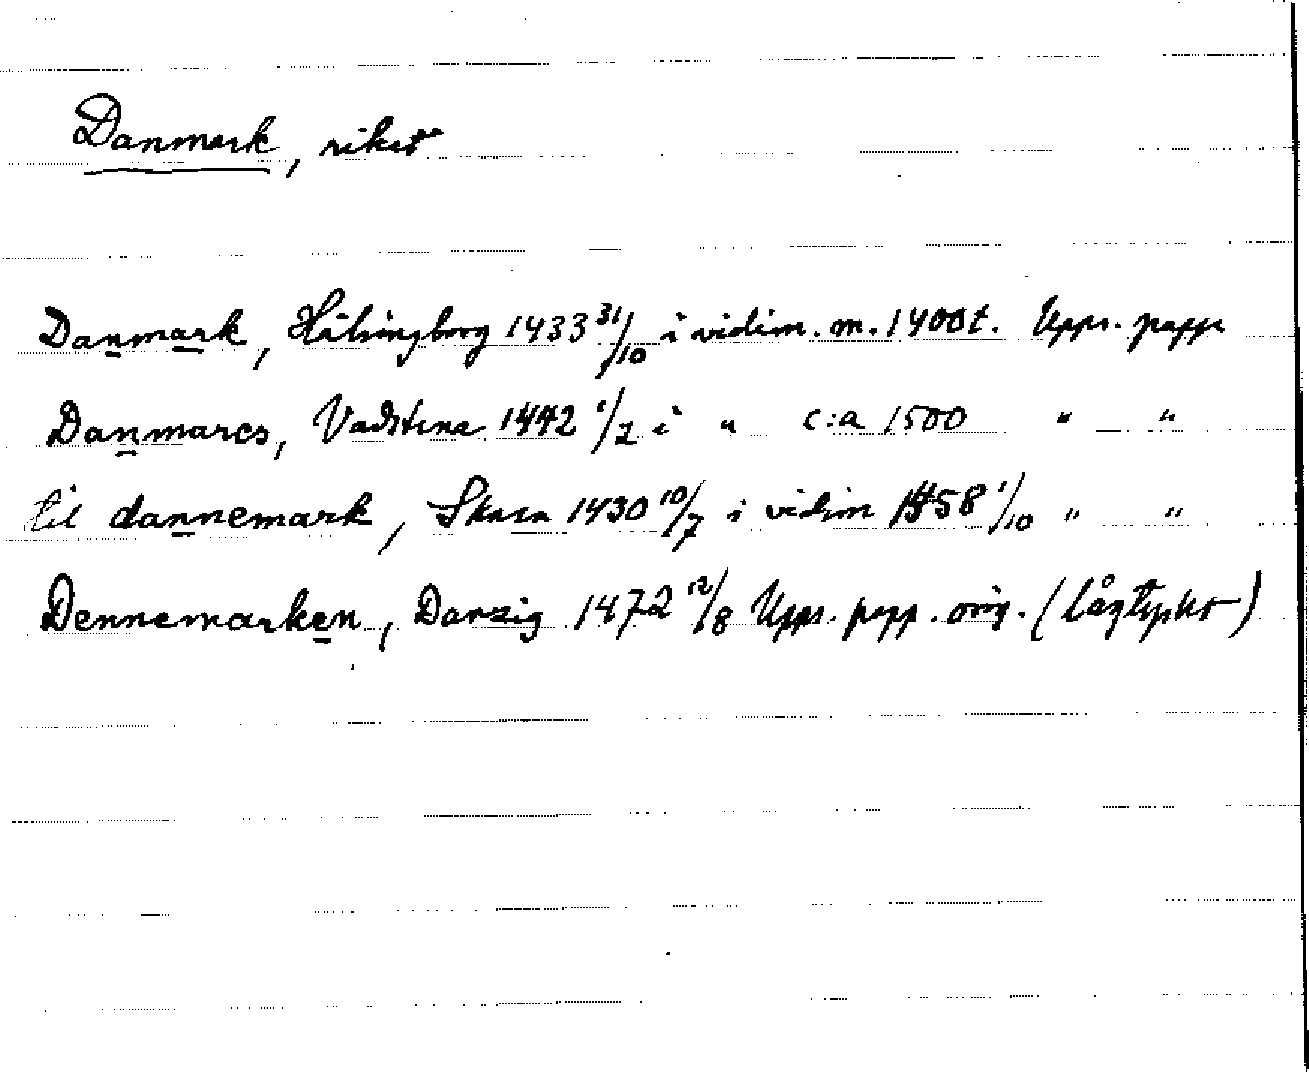 Danmark, riket
Danmark, Hälsingborg 1433 31/10 i vidim. m. 1400t. Upps. papp
Danmarcs, Vadstena 1442 1/7 i " c:a 1500 " "
til dannemark, Skara 1430 10/7 i vidim 1458 1/10 " "
Dennemarken, Danzig 1472 12/8 Upps. papp. orig. (lågtyskt)